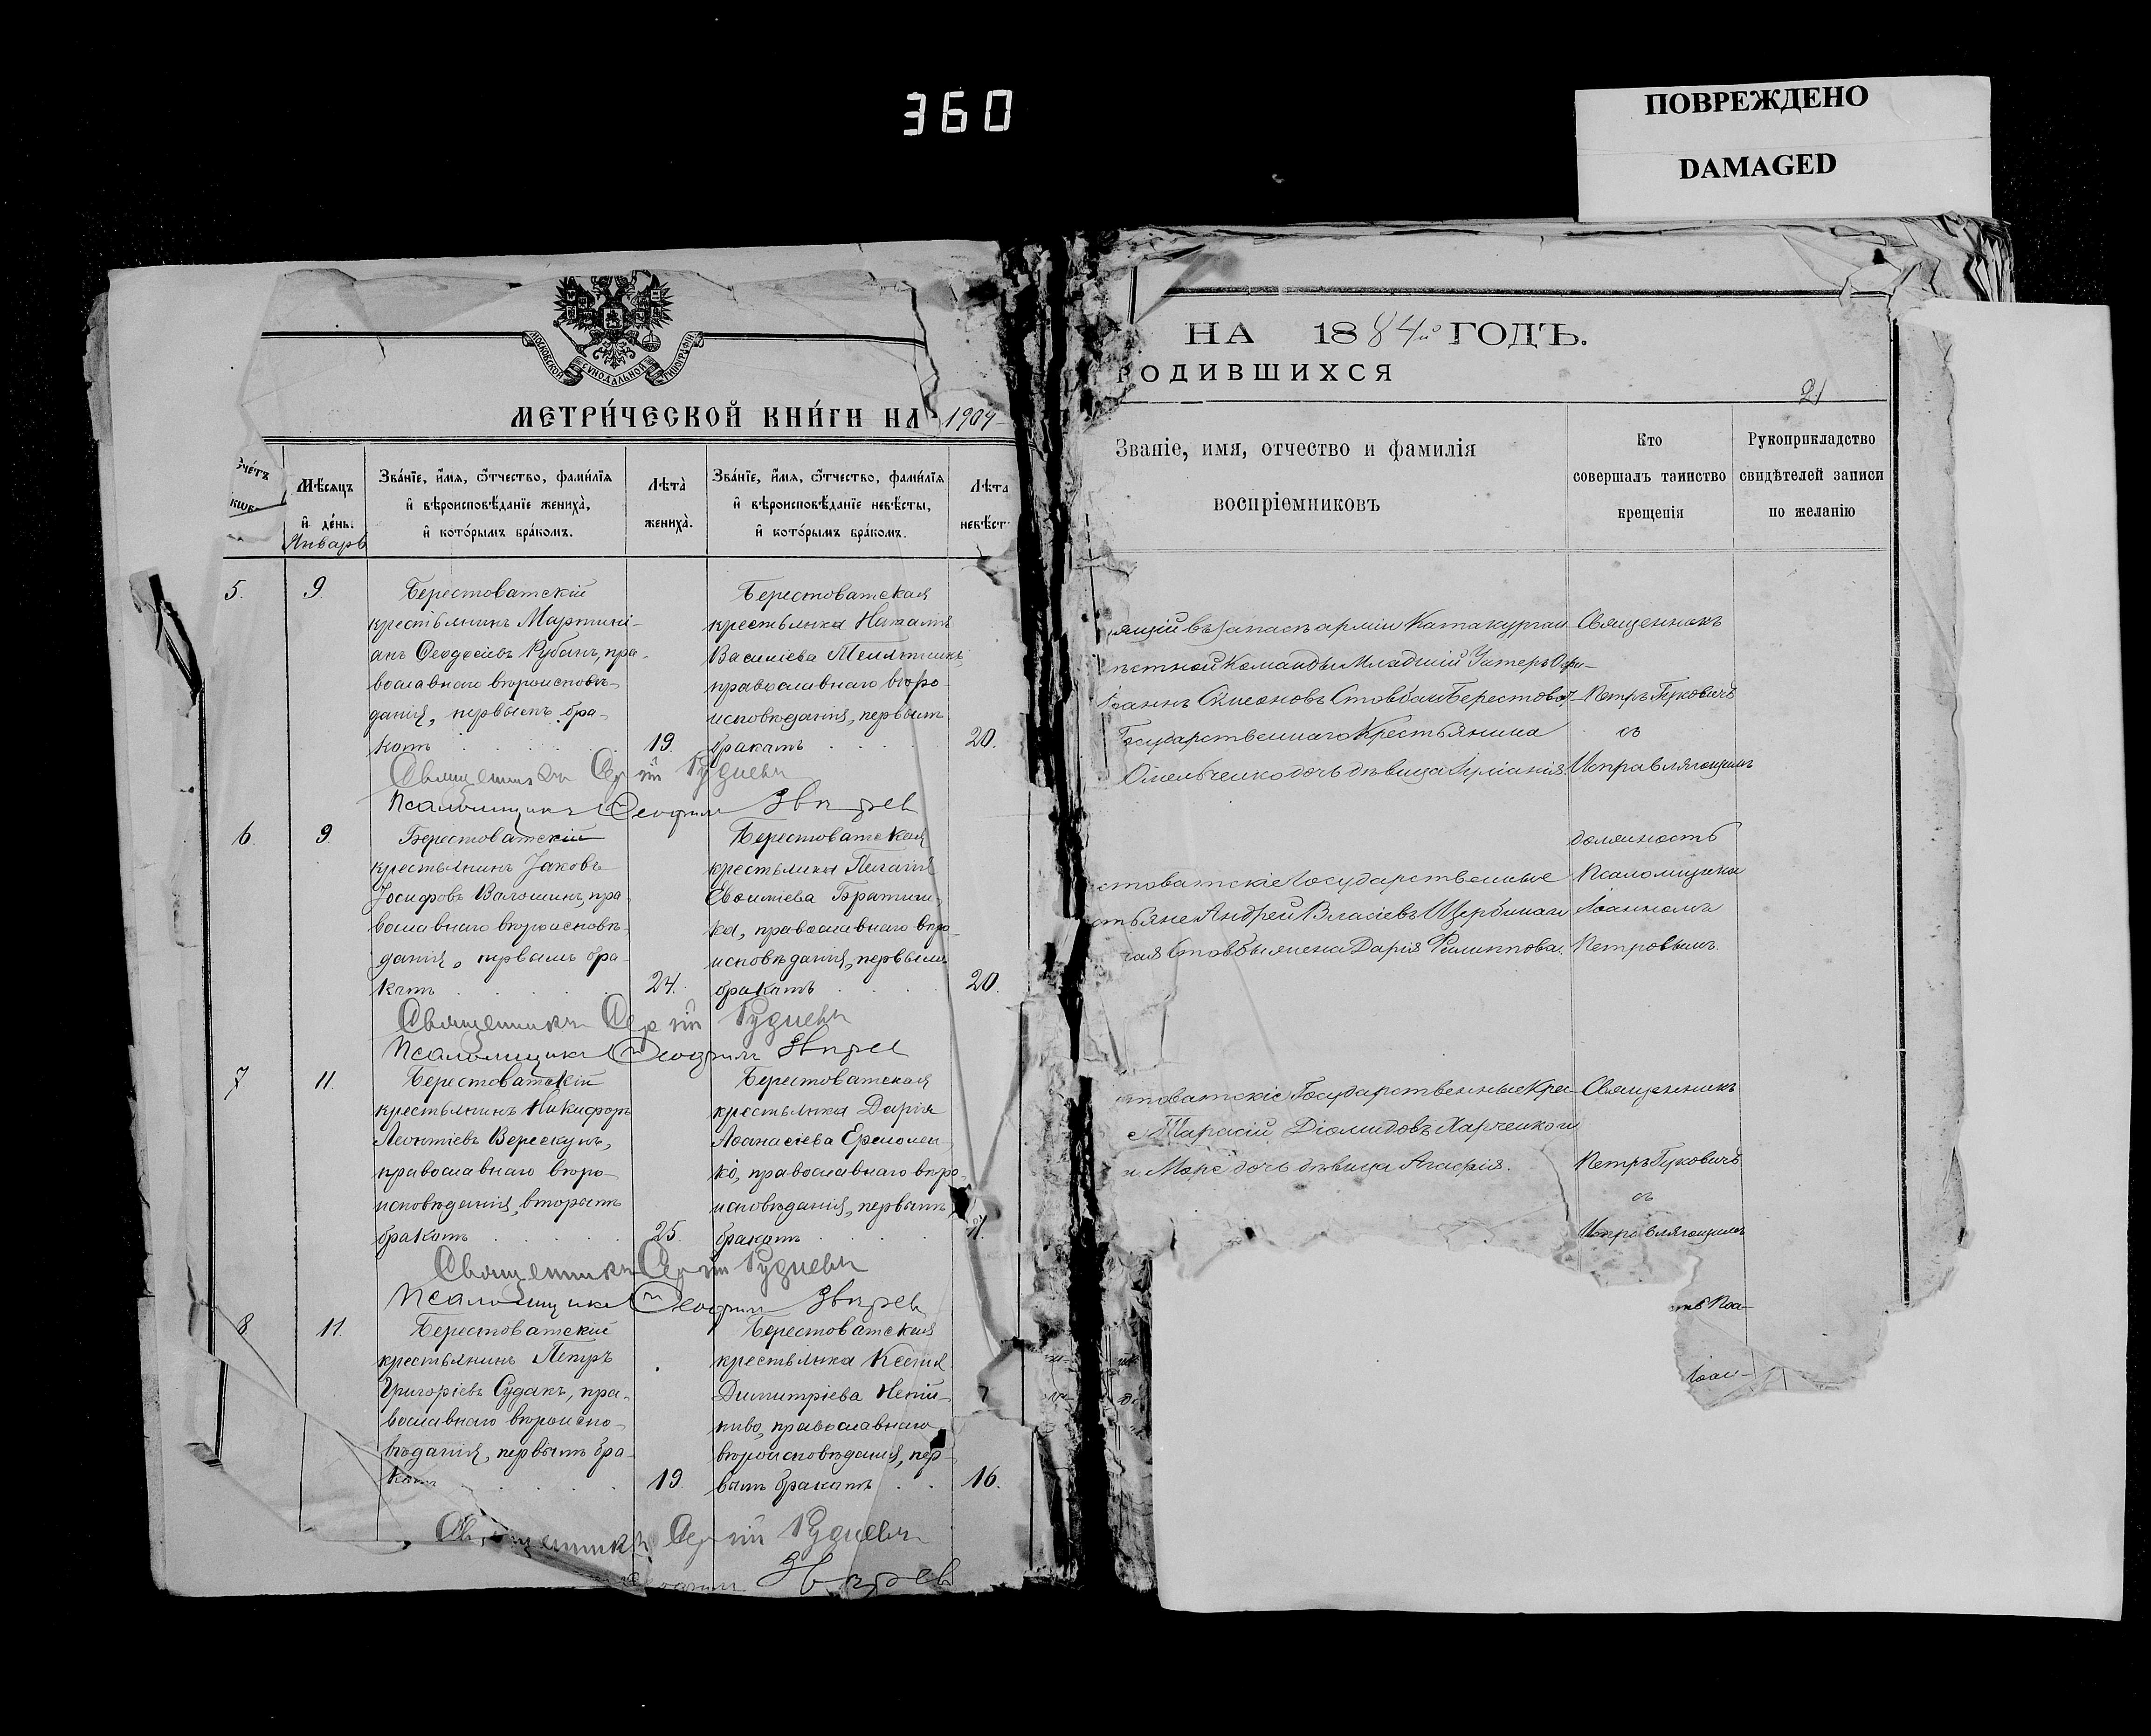 360
ПОВРЕЖДЕНО
DAMAGED
МОСКОВСКОЙ СУНОДАЛЬНОЙ ТИПОГРАФІИ
МЕТРИ́ЧЕСКОЙ КНИ́ГИ НА 1904
Мѣсяцъ
и҆ де́нь.
Январь
Зва́нїе, и҆́мѧ, ѻ҆́тчество, фами́лїѧ
и҆ вѣроисповѣ́данїе жениха̀,
и҆ кото́рымъ бра́комъ.
Лѣта̀
жениха̀.
Зва́нїе, и҆́мѧ, ѻ҆́тчество, фами́лїѧ
и҆ вѣроисповѣ́данїе невѣ́сты,
и҆ кото́рымъ бра́комъ.
Лѣта
невѣст
5.
9.
Берестоватскій
крестьянинъ Мартині-
анъ Ѳеодосіевъ Рубанъ, пра-
вославнаго вѣроисповѣ-
данія, первымъ бра-
комъ
19.
Берестоватская
крестьянка Наталія
Василіева
православнаго вѣро-
исповѣданія, первымъ
бракомъ
20.
Священникъ Сергій Рудневъ
Псаломщикъ Ѳеофилъ Звѣрев
6.
9.
Берестоватскій
крестьянинъ Іаковъ
Іосифовъ Валошинъ, пра-
вославнаго вѣроисповѣ-
данія, первымъ бра-
комъ
24.
Берестоватская
крестьянка Пелагія
Евѳиміева
ка, православнаго вѣро-
исповѣданія, первымъ
бракомъ
20.
Священникъ Сергій Рудневъ
Псаломщикъ Ѳеофилъ Звѣрев
7
11.
Берестоватскій
крестьянинъ Никифоръ
Леонтіевъ Верескунъ,
православнаго вѣро-
исповѣданія, вторымъ
бракомъ
25.
Берестоватская
крестьянка Дарія
Аѳанасіева Ереомен-
ко, православнаго вѣро-
исповѣданія, первымъ
бракомъ
Священникъ Сергій Рудневъ
Псаломщикъ Ѳеофилъ Звѣрев
8.
11.
Берестоватскій
крестьянинъ Петръ
Григоріевъ Судакъ, пра-
вославнаго вѣроиспо-
вѣданія, первымъ бра-
комъ
19.
Берестоватская
крестьянка Ксенія
Димитріева Непій-
пиво, православнаго
вѣроисповѣданія, пер-
вымъ бракомъ
16.
Священникъ Сергій Рудневъ
Звѣрев
НА 1884й ГОДЪ.
РОДИВШИХСЯ
21
Званіе, имя, отчество и фамилія
воспріемниковъ
Кто
совершалъ таинство
крещенія
Рукоприкладство
свидѣтелей записи
по желанію
ящій въ запасѣ арміи Катакурган-
ѣстной Команды Младшій Унтеръ Офи-
Іоаннъ Симеоновъ Стовбанъ Берестоват-
Государственнаго Крестьянина
Омельченко дочь дѣвица
Священникъ
Петръ Гуковичъ
съ
Исправляющимъ
должность
Псаломщика
Іоанномъ
Петровымъ.
стоватскіе Государственные
стьяне Андрей Власіевъ Щербина и
жена Дарія Филиппова.
стоватскіе Государственные Кре-
е Тарасій Діомидовъ Харченко и
дочь дѣвица Агафія.
Священникъ
Петръ Гуковичъ
съ
Исправляющимъ
ть Пса-
Іоан-